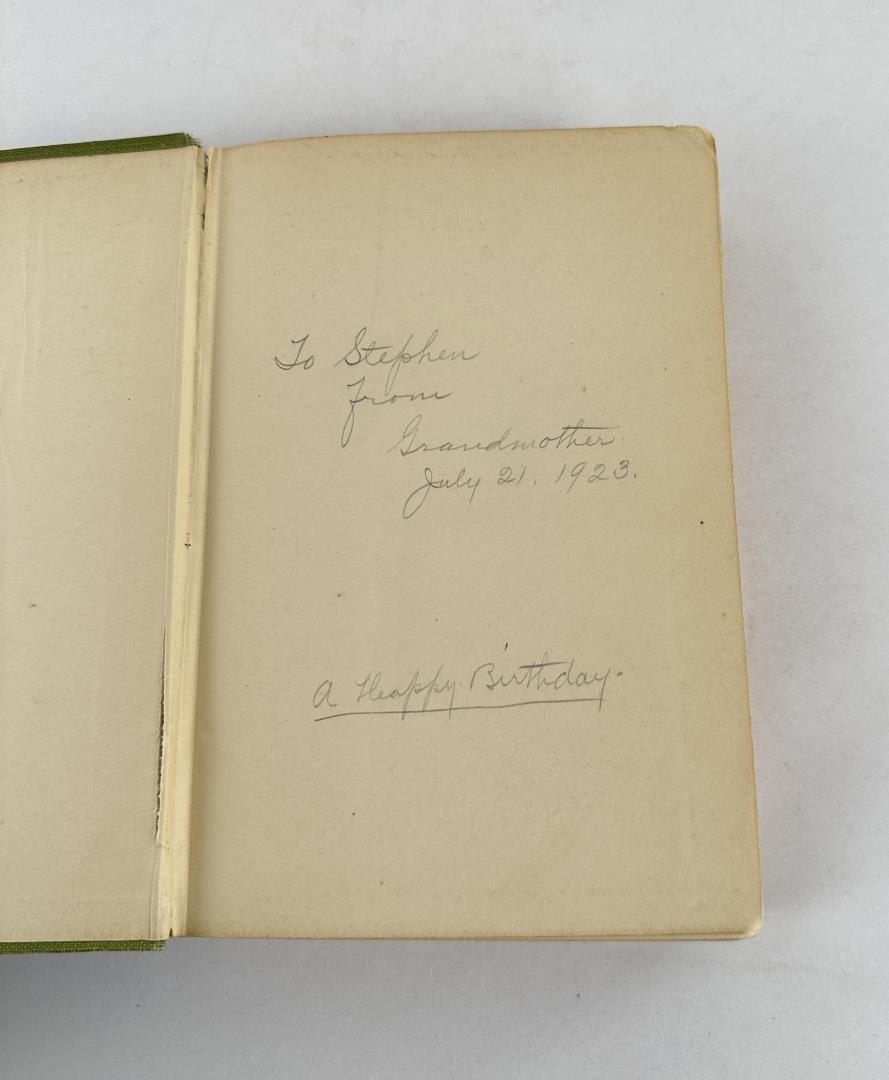 To Stephen
From
Grandmother.
July 21. 1923.
A Happy Birthday.